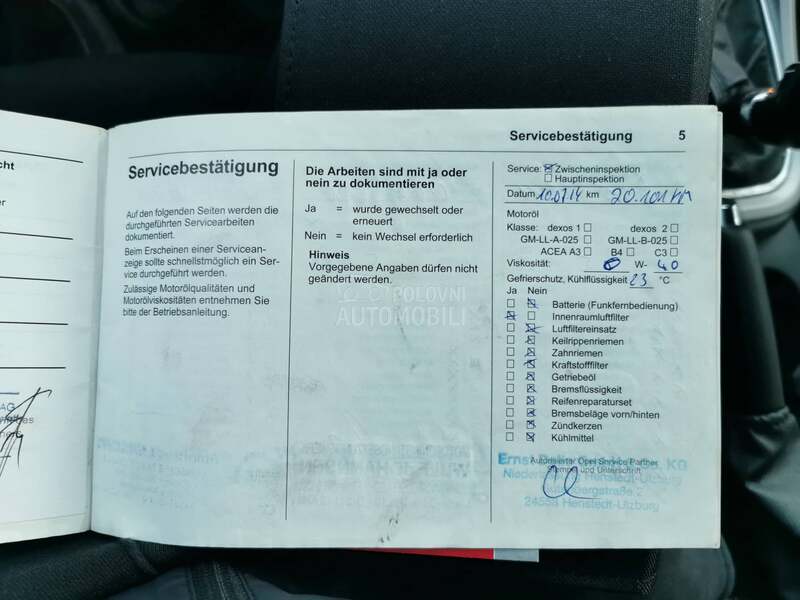 cht
er
AG
Servicebestätigung 5
Servicebestätigung
Auf den folgenden Seiten werden die
durchgeführten Servicearbeiten
dokumentiert.
Beim Erscheinen einer Servicean-
zeige sollte schnellstmöglich ein Ser-
vice durchgeführt werden.
Zulässige Motorölqualitäten und
Motorölviskositäten entnehmen Sie
bitte der Betriebsanleitung.
Die Arbeiten sind mit ja oder
nein zu dokumentieren
Ja = wurde gewechselt oder
erneuert
Nein = kein Wechsel erforderlich
Hinweis
Vorgegebene Angaben dürfen nicht
geändert werden.
POLOVNI
AUTOMOBILI
Service: Zwischeninspektion
Hauptinspektion
Datum 10.07.14 km 20.101 KM
Motoröl
Klasse: dexos 1 dexos 2
GM-LL-A-025 GM-LL-B-025
ACEA A3 B4 C3
Viskosität: 0 W- 40
Gefrierschutz, Kühlflüssigkeit 23 °C
Ja Nein
Batterie (Funkfernbedienung)
Innenraumluftfilter
Luftfiltereinsatz
Keilrippenriemen
Zahnriemen
Kraftstofffilter
Getriebeöl
Bremsflüssigkeit
Reifenreparaturset
Bremsbeläge vorn/hinten
Zündkerzen
Kühlmittel
Autorisierter Opel Service Partner
Stempel und Unterschrift
Ernst KG
Henstedt-Ulzburg
24558 Henstedt-Ulzburg